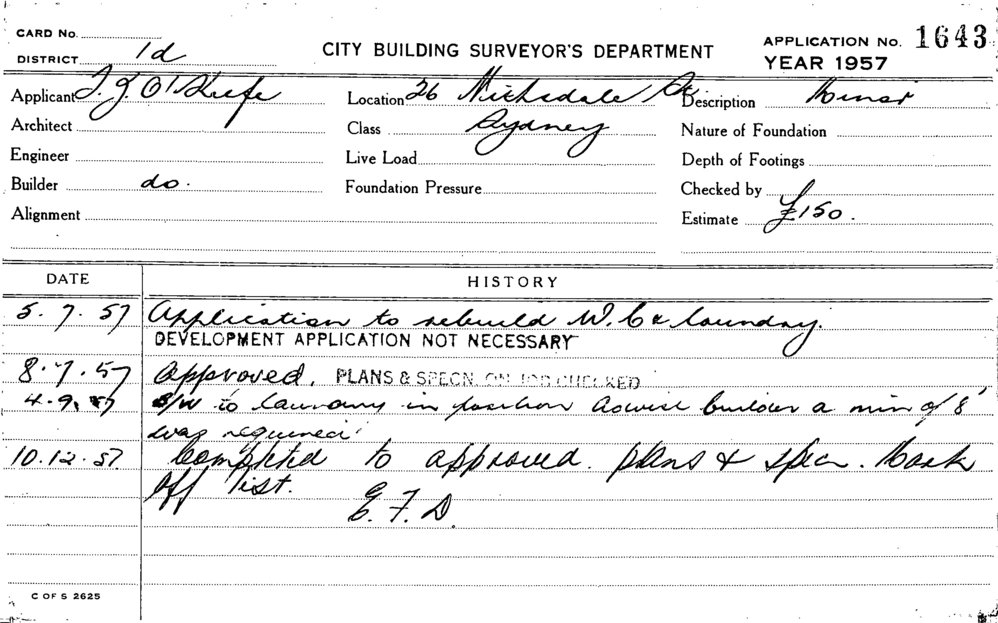 CARD No.
DISTRICT 1d
CITY BUILDING SURVEYOR'S DEPARTMENT
APPLICATION No. 1643
YEAR 1957
Applicant T. J. O'Keefe
Location 26
Description Minor
Architect
Class Sydney
Nature of Foundation
Engineer
Live Load
Depth of Footings
Builder do.
Foundation Pressure
Checked by
Alignment
Estimate £150.
DATE HISTORY
5.7.57 Application to rebuild W.C & laundry.
DEVELOPMENT APPLICATION NOT NECESSARY
8.7.57 Approved. PLANS & SPECN. ON JOB CHECKED
4.9.57 S/W to laundry in position advise builder a min of 8'
was required
10.12.57 Completed to approved. plans & specn. Mark
off list.
E. F. D.
C OF S 2625